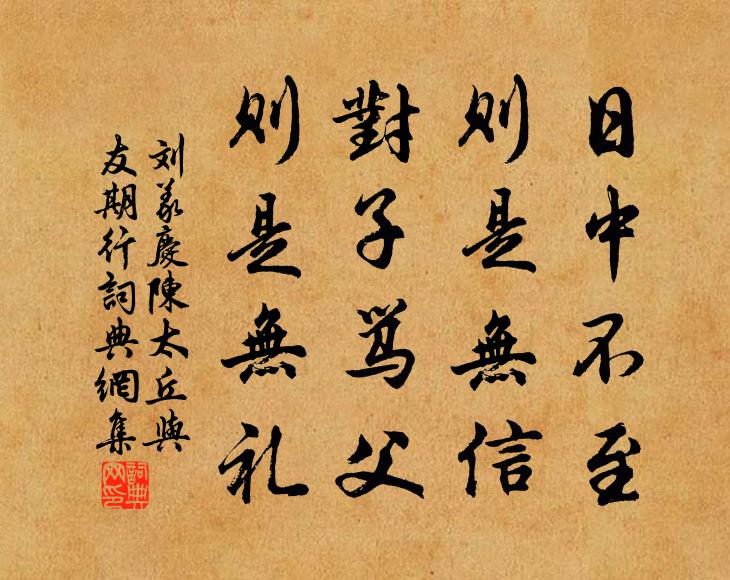 日中不至
則是無信
對子骂父
則是無礼
刘義慶陳太丘與
友期行詞典網集
詞典
網印